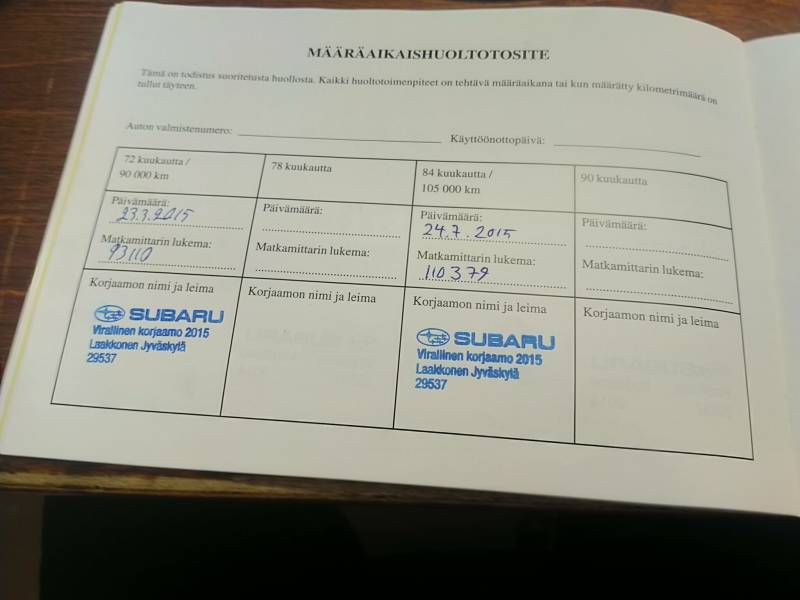 MÄÄRÄAIKAISHUOLTOTOSITE
Tämä on todistus suoritetusta huollosta. Kaikki huoltotoimenpiteet on tehtävä määräaikana tai kun määrätty kilometrimäärä on
tullut täyteen.
Auton valmistenumero:
Käyttöönottopäivä:
72 kuukautta /
90 000 km
Päivämäärä:
23.3.2015
Matkamittarin lukema:
93110
Korjaamon nimi ja leima
SUBARU
Virallinen korjaamo 2015
Laakkonen Jyväskylä
29537
78 kuukautta
Päivämäärä:
Matkamittarin lukema:
Korjaamon nimi ja leima
84 kuukautta /
105 000 km
Päivämäärä:
24.7.2015
Matkamittarin lukema:
110379
Korjaamon nimi ja leima
SUBARU
Virallinen korjaamo 2015
Laakkonen Jyväskylä
29537
90 kuukautta
Päivämäärä:
Matkamittarin lukema:
Korjaamon nimi ja leima